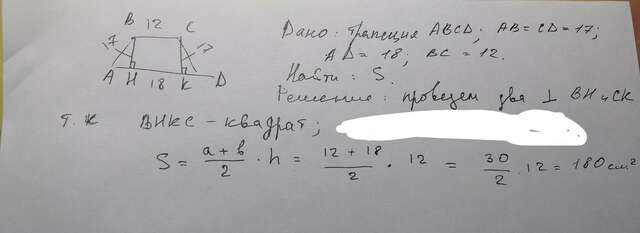 B 12 C
17 17
A H 18 K D
Дано: трапеция ABCD; AB=CD=17;
AD=18; BC=12.
Найти: S.
Решение: проведем два ⊥ BH и CK
т. к BHKC - квадрат;
S = (a+b)/2 · h = (12+18)/2 · 12 = 30/2 · 12 = 180 см²